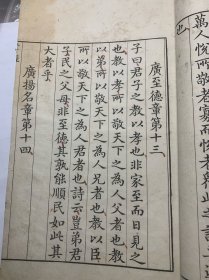 萬人悅所敬者寡而悅者衆此之
也
廣至德章第十三
子曰君子之教以孝也非家至而日見之
也教以孝所以敬天下之為人父者也教
以弟所以敬天下之為人兄者也教以臣
所以敬天下之為人君者也詩云豈弟君
子民之父母非至德其孰能順民如此其
大者乎
廣揚名章第十四